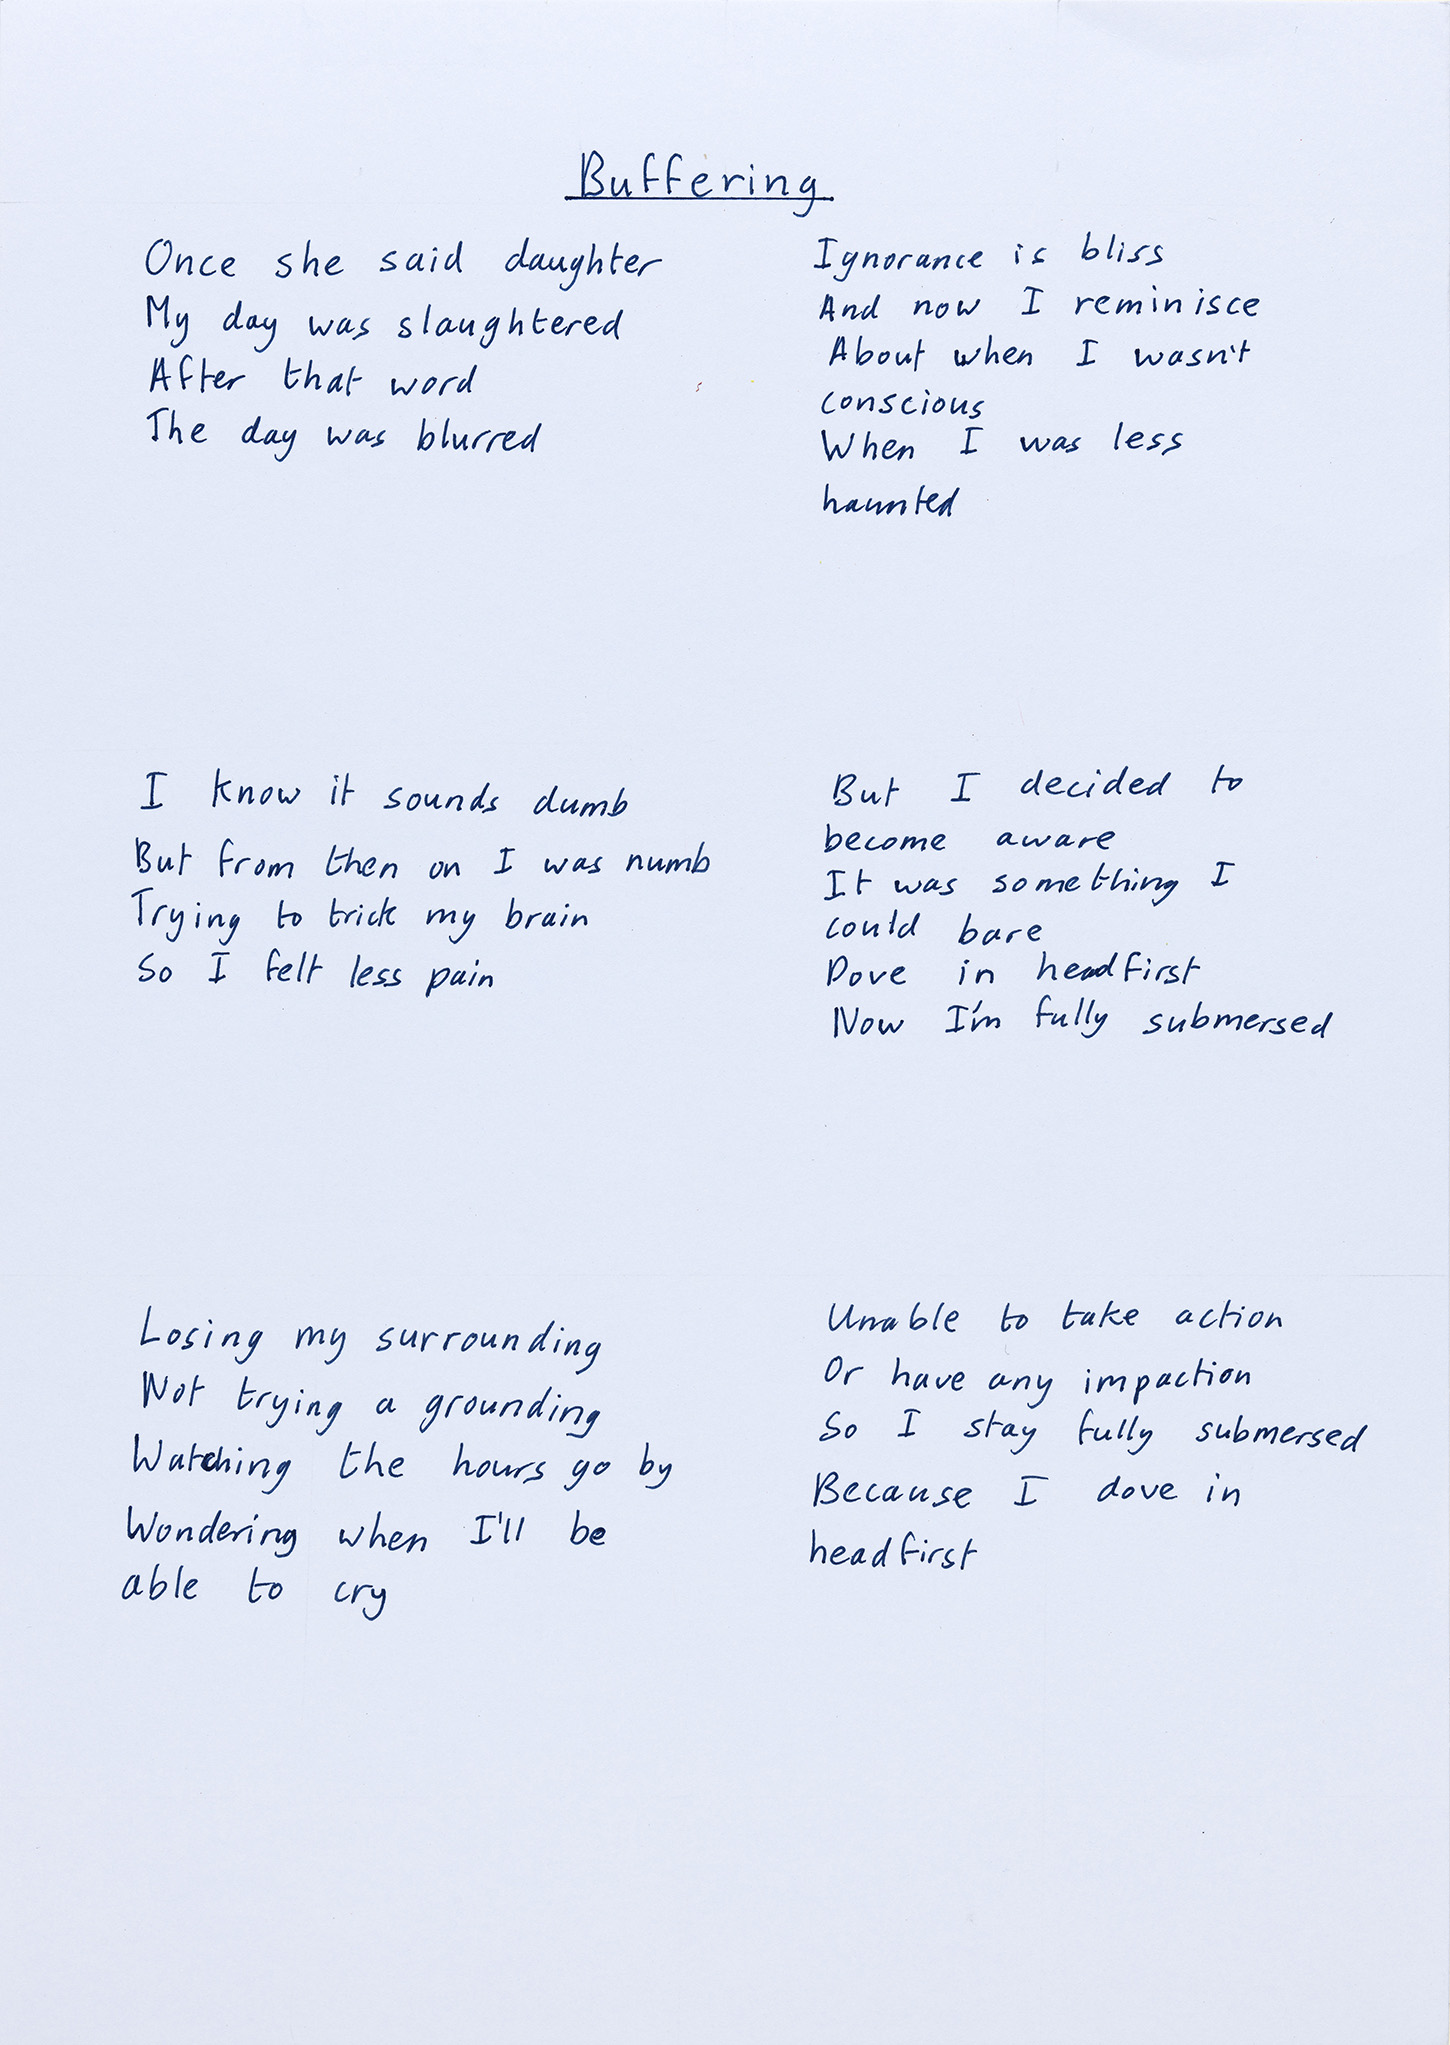 Buffering
Once she said daughter
My day was slaughtered
After that word
The day was blurred
I know it sounds dumb
But from then on I was numb
Trying to trick my brain
So I felt less pain
Losing my surrounding
Not trying a grounding
Watching the hours go by
Wondering when I'll be
able to cry
Ignorance is bliss
And now I reminisce
About when I wasn't
conscious
When I was less
haunted
But I decided to
become aware
It was something I
could bare
Dove in headfirst
Now I'm fully submersed
Unable to take action
Or have any impaction
So I stay fully submersed
Because I dove in
headfirst